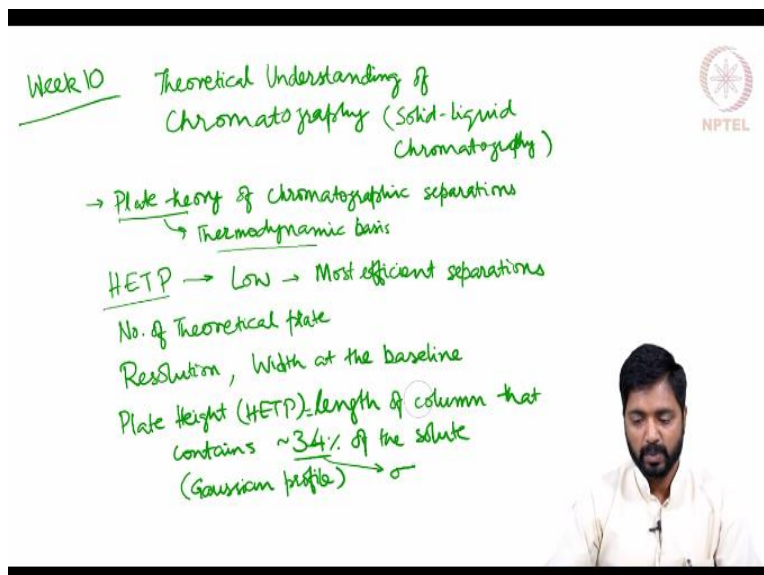 Week 10 Theoretical Understanding of
Chromatography (Solid-liquid
Chromatography)
NPTEL
→ Plate theory of chromatographic separations
↳ Thermodynamic basis
HETP → Low → Most efficient separations
No. of Theoretical plate
Resolution, Width at the baseline
Plate Height (HETP) = length of column that
contains ~34% of the solute
(Gaussian profile) → σ